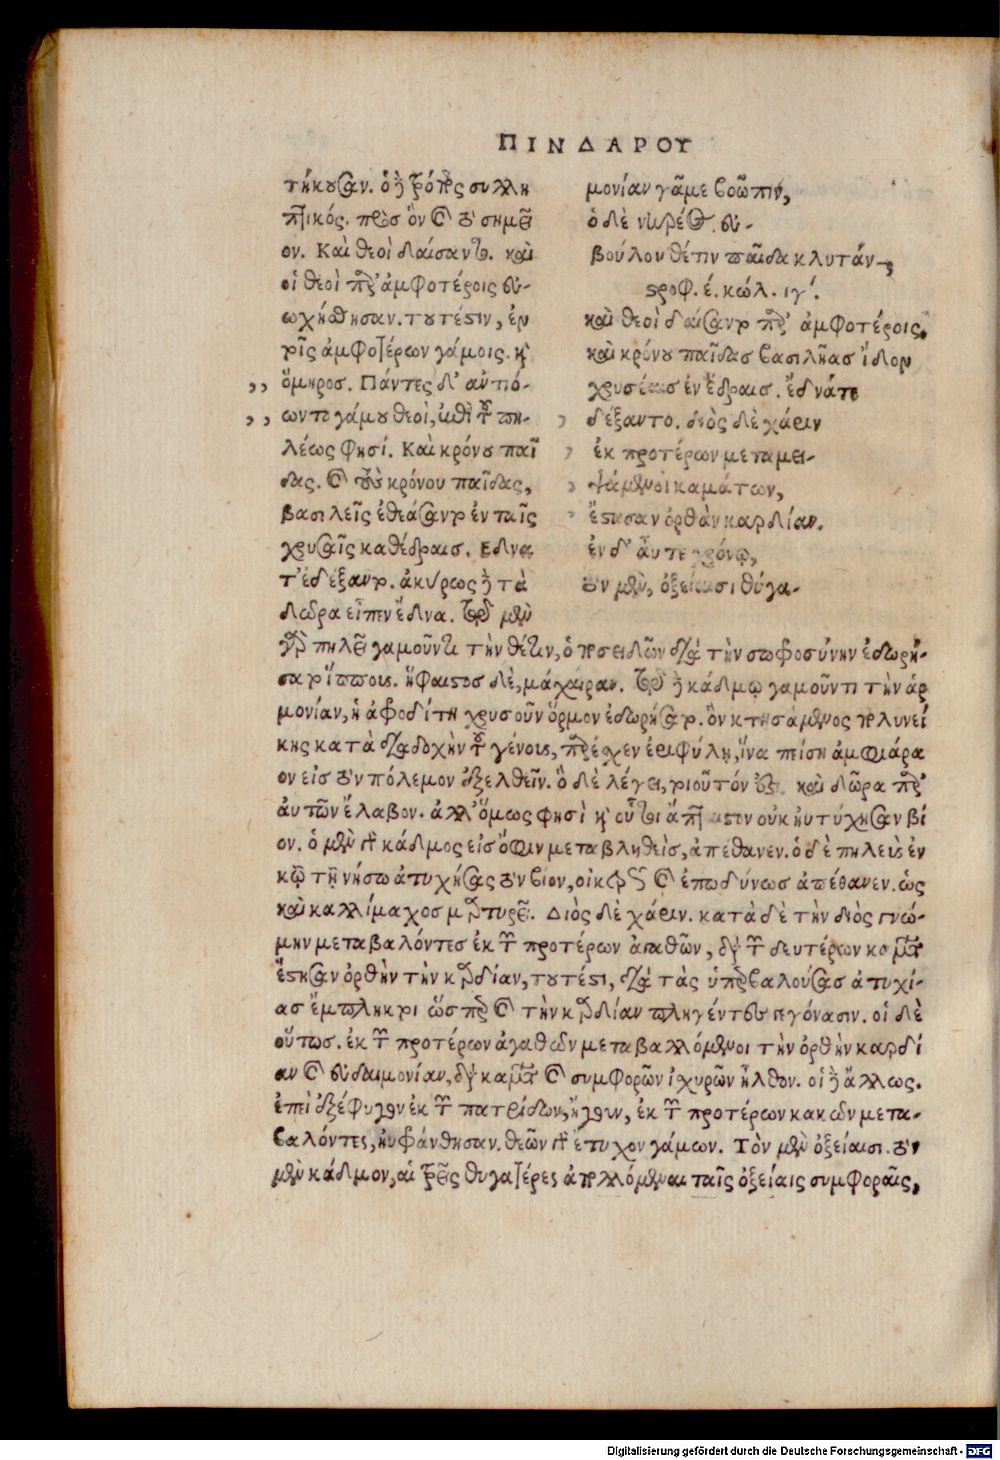 ΠΙΝΔΑΡΟΥ
τήκουσαν. ὁ δὲ τρόπος συλλη
πτικός. πρὸς ὃν καὶ τὸ σημεῖ
ον. Καὶ θεοὶ δαίσαντο. καὶ
οἱ θεοὶ παρ' ἀμφοτέροις εὐ-
ωχήθησαν. τουτέστιν, ἐν
τοῖς ἀμφοτέρων γάμοις. καὶ
,, ὅμηρος. Πάντες δ' ἀντιό-
,, ωντο γάμου θεοὶ, ἐπὶ τοῦ πη-
λέως φησί. Καὶ κρόνου παῖ
δας. καὶ τοὺς κρόνου παῖδας,
βασιλεῖς ἐθεάσαντο ἐν ταῖς
χρυσαῖς καθέδραις. Εδνα
τ' ἐδέξαντο. ἀκύρως δὲ τὰ
δῶρα εἶπεν ἕδνα. τῷ μὲν
μονίαν γᾶμε βοῶπιν,
ὁ δὲ νηρέος. εὐ-
βούλου θέτιν παῖδα κλυτάν
στροφ. έ. κώλ. ιγ'.
καὶ θεοὶ δαίσαντο παρ' ἀμφοτέροις,
καὶ κρόνου παῖδας βασιλῆας ἴδον
χρυσέαις ἐν ἕδραις. ἕδνά τε
δέξαντο. διὸς δὲ χάριν
ἐκ προτέρων μεταμει-
ψάμενοι καμάτων,
ἔστασαν ὀρθὰν καρδίαν.
ἐν δ' αὖτε χρόνῳ,
τὸν μὲν, ὀξείαισι θύγα-
γὰρ πηλεῖ γαμοῦντι τὴν θέτιν, ὁ ποσειδῶν διὰ τὴν σωφροσύνην ἐδωρή-
σατο ἵππους. ἥφαιστος δὲ, μάχαιραν. τῷ δὲ κάδμῳ γαμοῦντι τὴν ἁρ
μονίαν, ἡ ἀφροδίτη χρυσοῦν ὅρμον ἐδωρήσατο. ὃν κτησάμενος πολυνεί
κης κατὰ διαδοχὴν τοῦ γένους, παρέσχεν ἐριφύλῃ, ἵνα πείσῃ ἀμφιάρα
ον εἰς τὸν πόλεμον ἐξελθεῖν. ὃ δὲ λέγει, τοιοῦτόν ἐστι. καὶ δῶρα παρ'
αὐτῶν ἔλαβον. ἀλλ' ὅμως φησὶ καὶ οὗτοι ἄπταιστον οὐκ ηὐτύχησαν βί
ον. ὁ μὲν γὰρ κάδμος εἰς ὄφιν μεταβληθεὶς, ἀπέθανεν. ὁ δὲ πηλεὺς ἐν
κῷ τῇ νήσῳ ἀτυχήσας τὸν βίον, οἰκτρῶς καὶ ἐπωδύνως ἀπέθανεν. ὡς
καὶ καλλίμαχος μαρτυρεῖ. Διὸς δὲ χάριν. κατὰ δὲ τὴν διὸς γνώ-
μην μεταβαλόντες ἐκ τῶν προτέρων ἀγαθῶν, διὰ τῶν δευτέρων καμάτων
ἔστησαν ὀρθὴν τὴν καρδίαν, τουτέστι, διὰ τὰς ὑπερβαλούσας ἀτυχί-
ας ἔμπληκτοι ὥσπερ καὶ τὴν καρδίαν πληγέντες γεγόνασιν. οἱ δὲ
οὕτως. ἐκ τῶν προτέρων ἀγαθῶν μεταβαλλόμενοι τὴν ὀρθὴν καρδί
αν καὶ εὐδαιμονίαν, διὰ καμάτων καὶ συμφορῶν ἰσχυρῶν ἦλθον. οἱ δὲ ἄλλως.
ἐπεὶ ἐξέφυγον ἐκ τῶν πατρίδων, ἤγουν, ἐκ τῶν προτέρων κακῶν μετα-
βαλόντες, ηὐφράνθησαν. θεῶν γὰρ ἔτυχον γάμων. Τὸν μὲν ὀξείαισι. τὸν
μὲν κάδμον, αἱ τρεῖς θυγατέρες ἀπολλόμεναι ταῖς ὀξείαις συμφοραῖς,
Digitalisierung gefördert durch die Deutsche Forschungsgemeinschaft - DFG